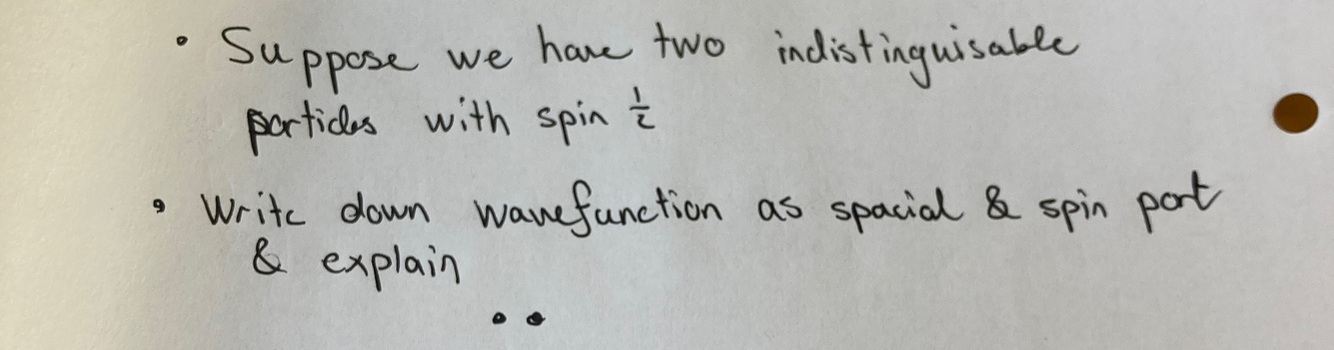 • Suppose we have two indistinguisable
particles with spin 1/2
• Write down wavefunction as spacial & spin part
& explain